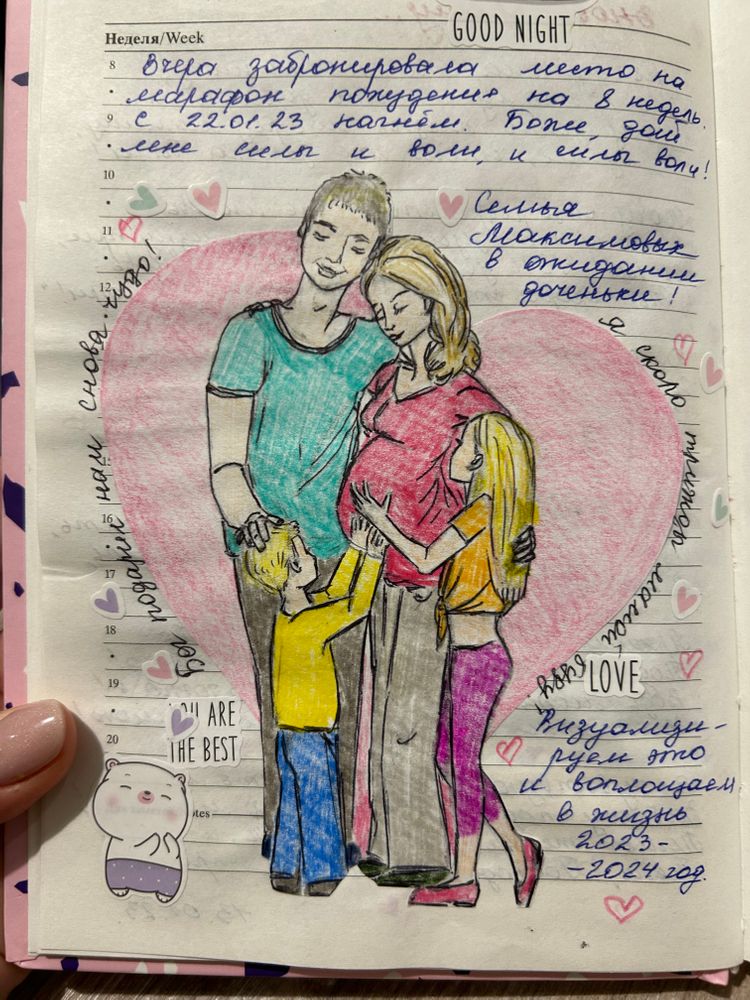 GOOD NIGHT
Неделя/Week
8
Вчера забронировала место на
марафон похудения на 8 недель.
9
С 22.01.23 начнём. Боже, дай
мне силы и воли, и силы воли!
10
11
12
Семья
Максимовых
в ожидании
доченьки!
Бог подарил нам снова чудо!
Я скоро трижды мамой буду!
16
17
18
19
20
LOVE
YOU ARE
THE BEST
Визуализи-
руем это
и воплощаем
в жизнь
2023-
-2024 год.